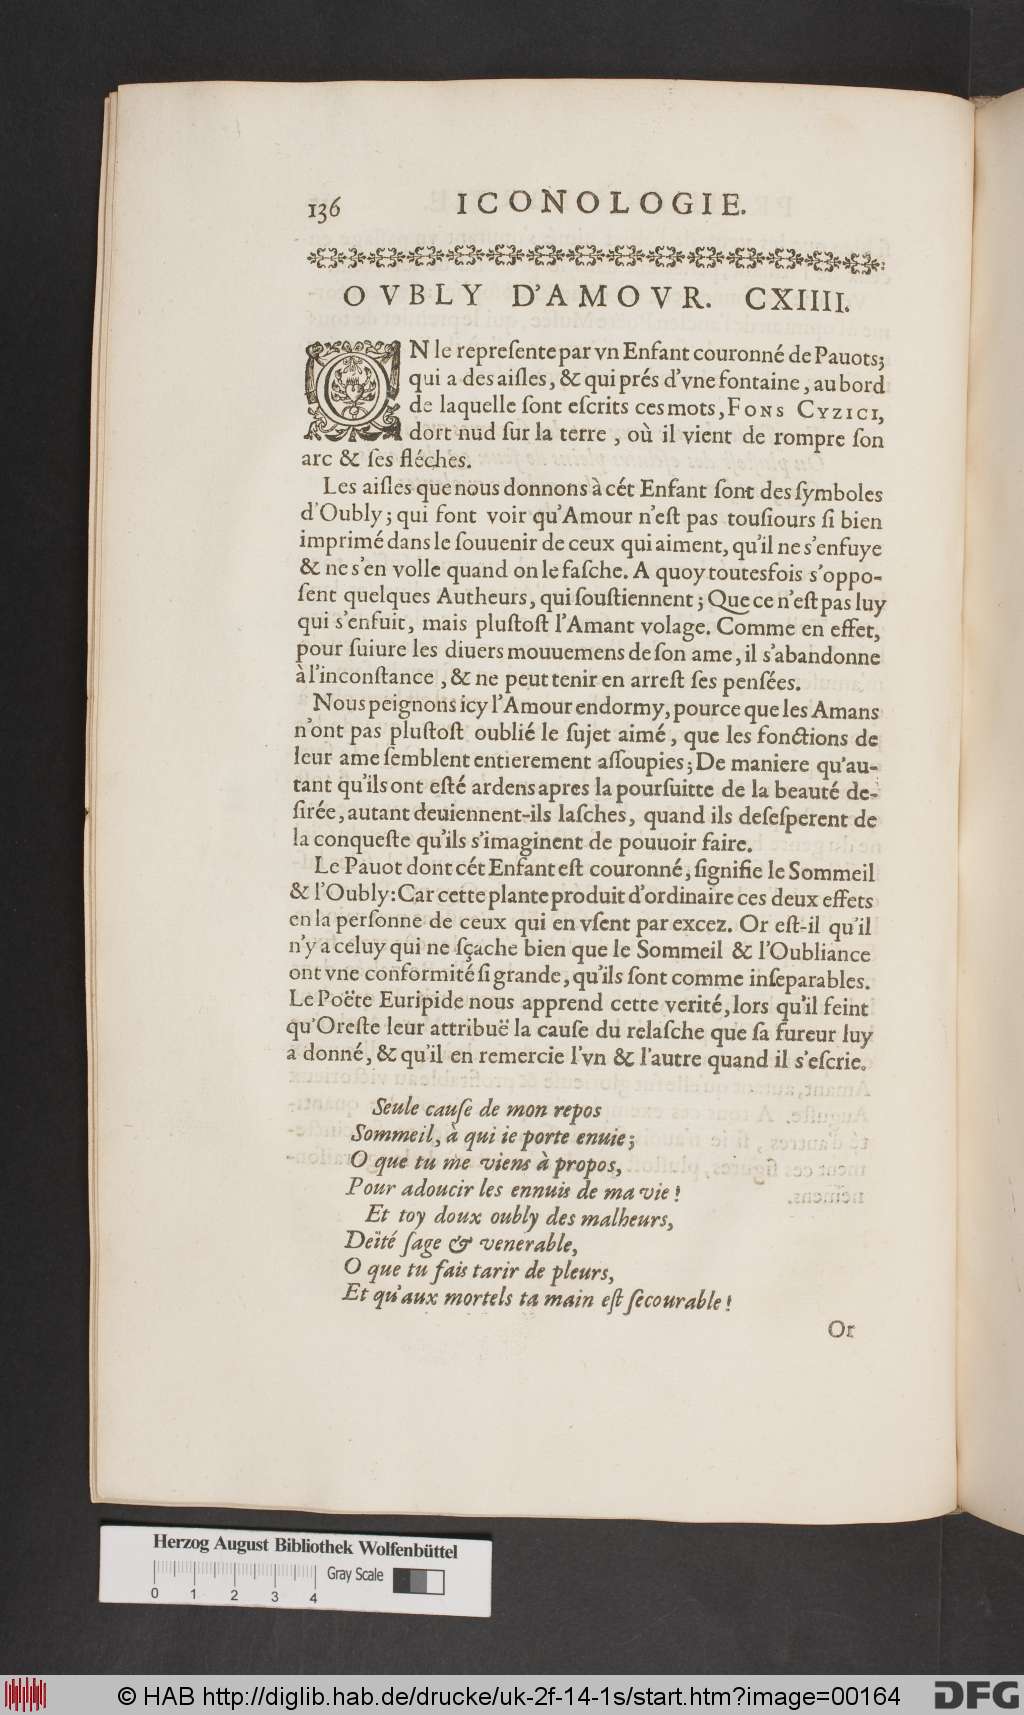 136 ICONOLOGIE.
OVBLY D'AMOVR. CXIIII.
ON le repreſente par vn Enfant couronné de Pauots;
qui a des aiſles, & qui prés d'vne fontaine, au bord
de laquelle ſont eſcrits ces mots, FONS CYZICI,
dort nud ſur la terre, où il vient de rompre ſon
arc & ſes fléches.
Les aiſles que nous donnons à cét Enfant ſont des ſymboles
d'Oubly; qui font voir qu'Amour n'eſt pas touſiours ſi bien
imprimé dans le ſouuenir de ceux qui aiment, qu'il ne s'enfuye
& ne s'en volle quand on le faſche. A quoy toutesfois s'oppo-
ſent quelques Autheurs, qui ſouſtiennent; Que ce n'eſt pas luy
qui s'enfuit, mais pluſtoſt l'Amant volage. Comme en effet,
pour ſuiure les diuers mouuemens de ſon ame, il s'abandonne
à l'inconſtance, & ne peut tenir en arreſt ſes penſées.
Nous peignons icy l'Amour endormy, pource que les Amans
n'ont pas pluſtoſt oublié le ſujet aimé, que les fonctions de
leur ame ſemblent entierement aſſoupies; De maniere qu'au-
tant qu'ils ont eſté ardens apres la pourſuitte de la beauté de-
ſirée, autant deuiennent-ils laſches, quand ils deſeſperent de
la conqueſte qu'ils s'imaginent de pouuoir faire.
Le Pauot dont cét Enfant eſt couronné, ſignifie le Sommeil
& l'Oubly: Car cette plante produit d'ordinaire ces deux effets
en la perſonne de ceux qui en vſent par excez. Or eſt-il qu'il
n'y a celuy qui ne ſçache bien que le Sommeil & l'Oubliance
ont vne conformité ſi grande, qu'ils ſont comme inſeparables.
Le Poëte Euripide nous apprend cette verité, lors qu'il feint
qu'Oreſte leur attribuë la cauſe du relaſche que ſa fureur luy
a donné, & qu'il en remercie l'vn & l'autre quand il s'eſcrie.
Seule cauſe de mon repos
Sommeil, à qui ie porte enuie;
O que tu me viens à propos,
Pour adoucir les ennuis de ma vie!
Et toy doux oubly des malheurs,
Deïté ſage & venerable,
O que tu fais tarir de pleurs,
Et qu'aux mortels ta main eſt ſecourable!
Or
Herzog August Bibliothek Wolfenbüttel
Gray Scale
0 1 2 3 4
© HAB http://diglib.hab.de/drucke/uk-2f-14-1s/start.htm?image=00164
DFG